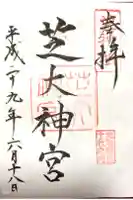 奉拝
芝大神宮
平成二十九年六月十八日